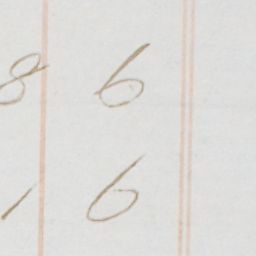 8 6
1 6